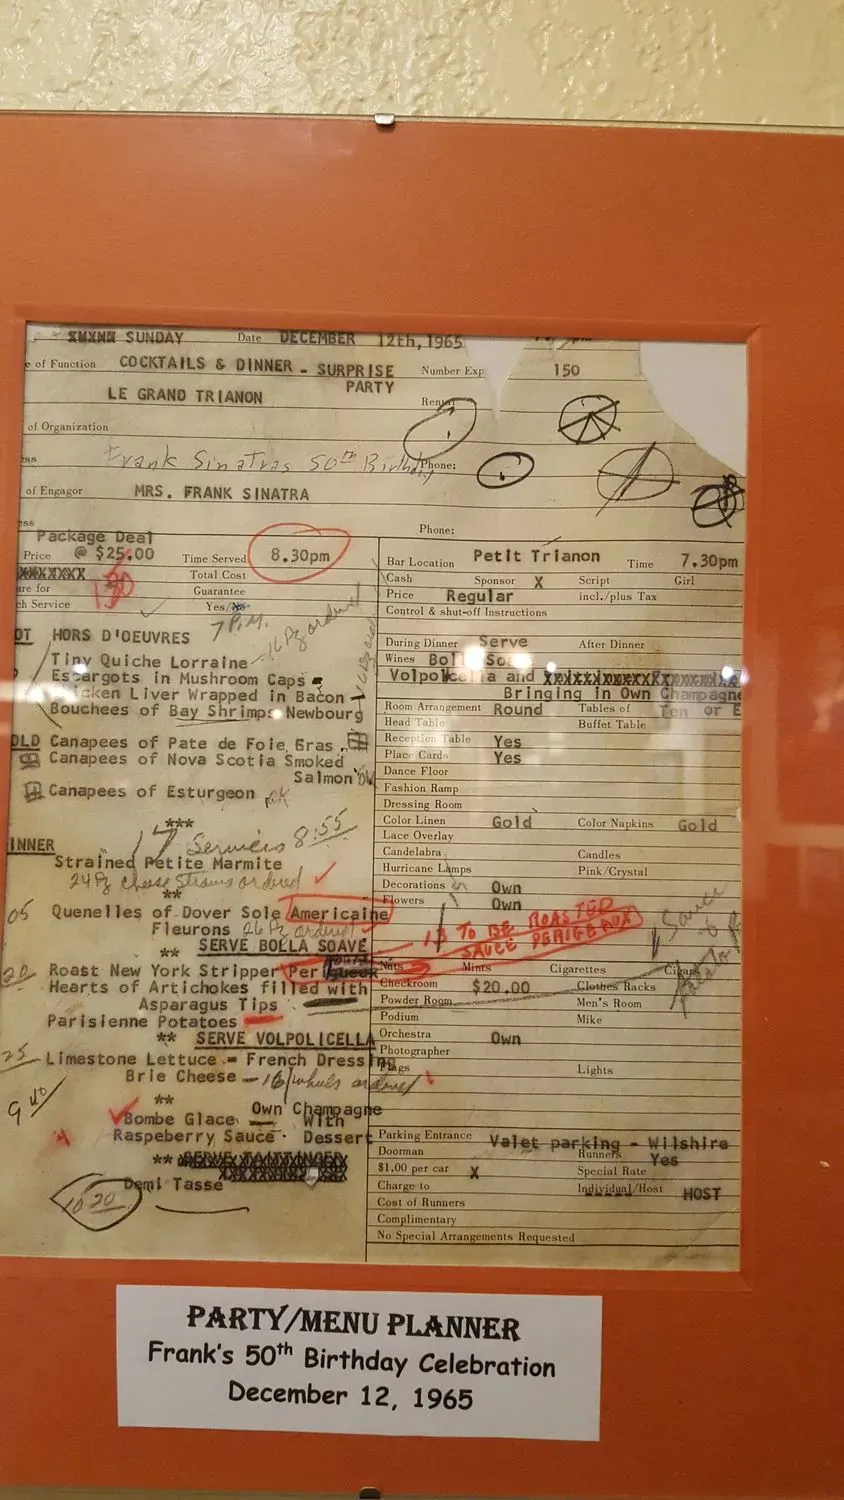 SUNDAY Date DECEMBER 12th, 1965
e of Function COCKTAILS & DINNER - SURPRISE PARTY Number Exp 150
LE GRAND TRIANON Rental
of Organization
ess Frank Sinatras 50th Birthday Phone:
of Engagor MRS. FRANK SINATRA
ess Phone:
Package Deal
Price @ $25.00 Time Served 8.30pm
XXXXXXX Total Cost
are for 130 Guarantee
ch Service Yes/No
7 P.M.
16 Pz ordered
OT HORS D'OEUVRES
Tiny Quiche Lorraine
Escargots in Mushroom Caps
icken Liver Wrapped in Bacon
Bouchees of Bay Shrimps Newbourg
OLD Canapees of Pate de Foie Gras
Canapees of Nova Scotia Smoked
Salmon OK
Canapees of Esturgeon OK
***
17 Services 8:55
INNER
Strained Petite Marmite
24 Pz cheese straws ordered
**
05 Quenelles of Dover Sole Americaine
Fleurons 26 Pz ordered
** SERVE BOLLA SOAVE
20 Roast New York Stripper
Hearts of Artichokes filled with
Asparagus Tips
Parisienne Potatoes
** SERVE VOLPOLICELLA
25 Limestone Lettuce - French Dressing
Brie Cheese - 16 wheels ordered
**
9 40
Bombe Glace Own Champagne With
Raspeberry Sauce Dessert
** SERVE TAITTINGER
Demi Tasse
10 20
Bar Location Petit Trianon Time 7.30pm
Cash Sponsor X Script Girl
Price Regular incl./plus Tax
Control & shut-off Instructions
During Dinner Serve After Dinner
Wines Bolla Soave
Volpolicella and
Bringing in Own Champagne
Room Arrangement Round Tables of Ten or E
Head Table Buffet Table
Reception Table Yes
Place Cards Yes
Dance Floor
Fashion Ramp
Dressing Room
Color Linen Gold Color Napkins Gold
Lace Overlay
Candelabra Candles
Hurricane Lamps Pink/Crystal
Decorations Own
Flowers Own
13 TO BE ROASTED
SAUCE PERIGEAUX
Nuts Mints Cigarettes Cigars
Checkroom $20.00 Clothes Racks
Powder Room Men's Room
Podium Mike
Orchestra Own
Photographer
Flags Lights
Parking Entrance Valet parking - Wilshire
Doorman Runners Yes
$1.00 per car X Special Rate
Charge to Individual/Host HOST
Cost of Runners
Complimentary
No Special Arrangements Requested
PARTY/MENU PLANNER
Frank's 50th Birthday Celebration
December 12, 1965